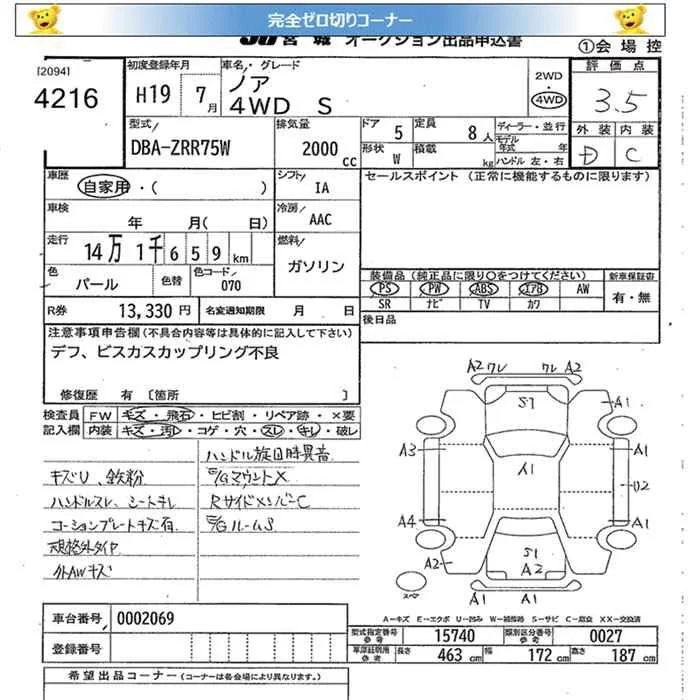 完全ゼロ切りコーナー
JU宮城 オークション出品申込書
①会場控
[2094]
4216
初度登録年月
H19 7月
車名・グレード
ノア
4WD S
2WD
4WD
評価点
3.5
型式
DBA-ZRR75W
排気量
2000cc
ドア 5
定員 8人
形状 W
積載 kg
ディーラー・並行
モデル年式 年
ハンドル 左・右
外装 内装
D C
車歴
自家用・( )
シフト IA
セールスポイント(正常に機能するものに限ります)
車検
年 月( 日)
冷房 AAC
走行
14万1千659km
燃料 ガソリン
色 パール
色替
色コード 070
装備品(純正品に限り○をつけてください)
PS PW ABS エアB AW
SR ナビ TV カワ
新車保証書
有・無
R券 13,330円
名変通知期限 月 日
後日品
注意事項申告欄(不具合内容等は具体的に記入して下さい)
デフ、ビスカスカップリング不良
修復歴 有 [箇所 ]
検査員 FW キズ・飛石・ヒビ割・リペア跡・×要
記入欄 内装 キズ・汚レ・コゲ・穴・スレ・キレ・破レ
キズU、鉄粉
ハンドルスレ、シートキレ
コーションプレートキズ有
規格外タイヤ
外AWキズ
ハンドル旋回時異音
E/GマウントX
RサイドメンバーC
E/GルームS
A2 ワレ ワレ A2
S1
A1
A3
A1
A1
U2
A4
A1
S1
A2
A2
A1 A1
スペア
A-キズ E-エクボ U-凹み W-補修跡 S-サビ C-腐食 XX-交換済
車台番号 0002069
登録番号
型式指定番号 参考 15740
類別区分番号 参考 0027
車庫証明用 参考 長さ 463cm 幅 172cm 高さ 187cm
希望出品コーナー(コーナーは各会場により異なります。)